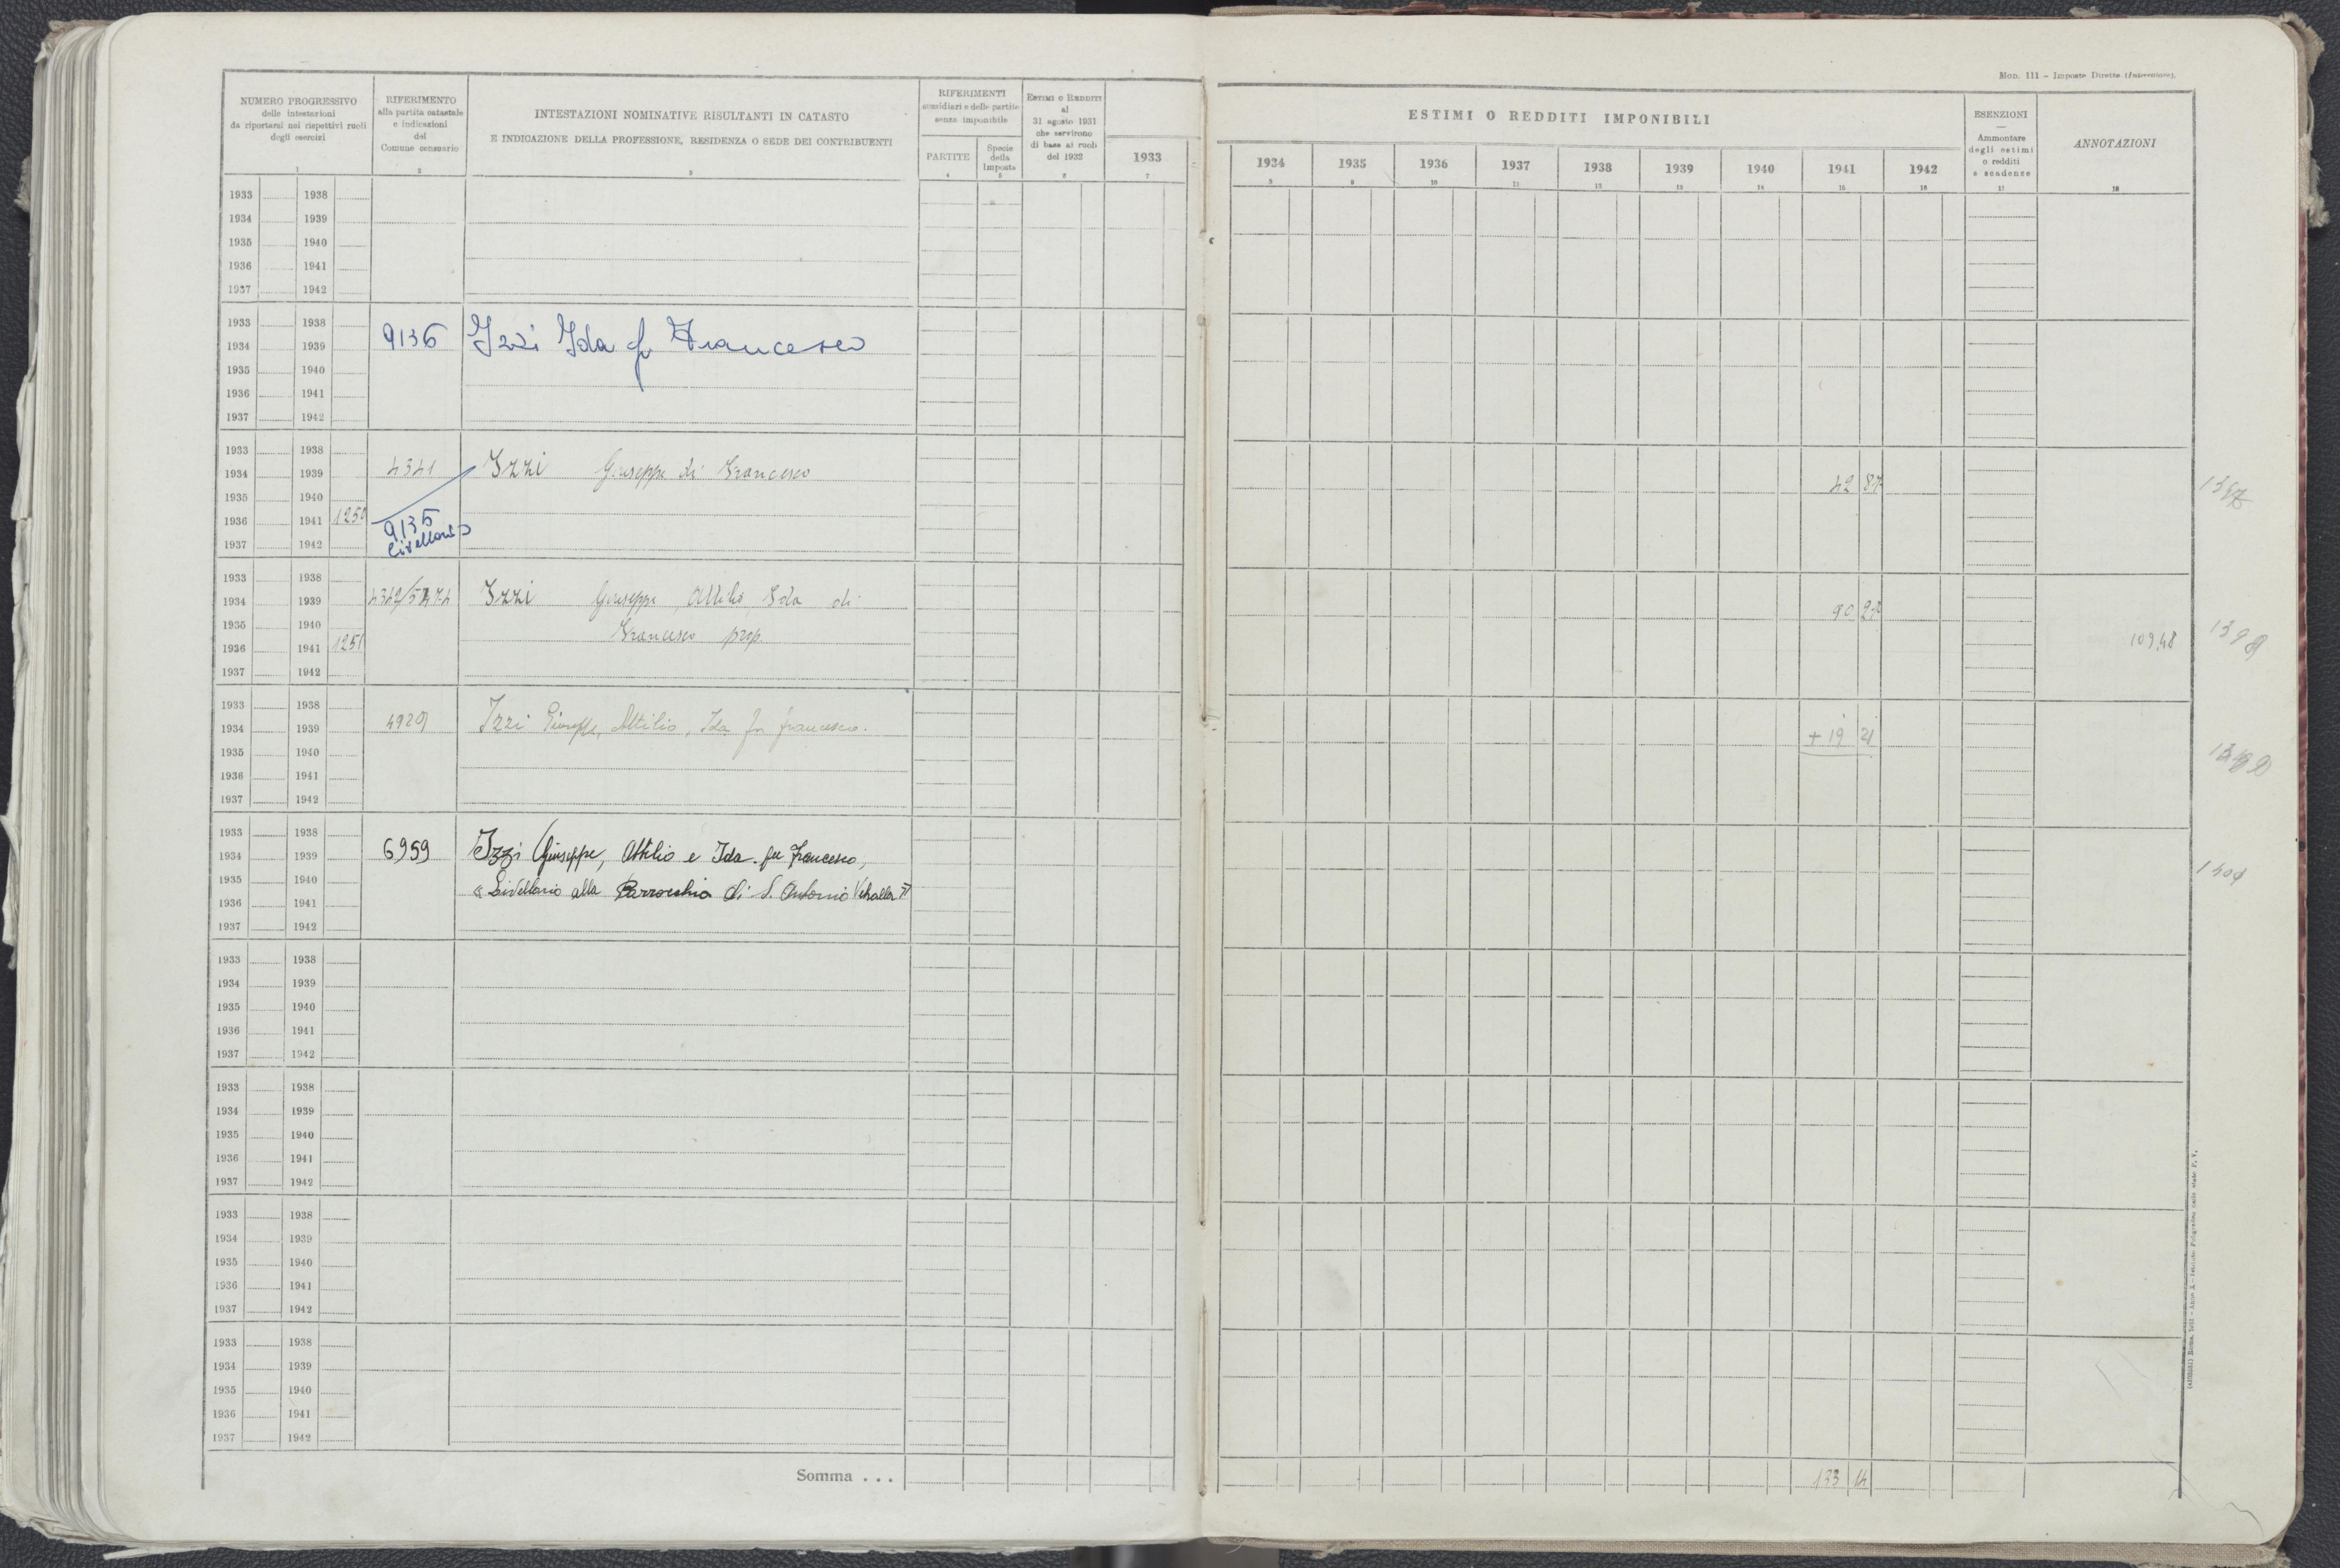 Mod. 111 - Imposte Dirette (Intercalare).
NUMERO PROGRESSIVO
delle intestazioni
da riportarsi nei rispettivi ruoli
degli esercizi
1
RIFERIMENTO
alla partita catastale
e indicazioni
del
Comune censuario
2
INTESTAZIONI NOMINATIVE RISULTANTI IN CATASTO
E INDICAZIONE DELLA PROFESSIONE, RESIDENZA O SEDE DEI CONTRIBUENTI
3
RIFERIMENTI
sussidiari e delle partite
senza imponibile
PARTITE
4
Specie
della
Imposta
5
ESTIMI O REDDITI
al
31 agosto 1931
che servirono
di base ai ruoli
del 1932
6
1933
7
ESTIMI O REDDITI IMPONIBILI
1934 1935 1936 1937 1938 1939 1940 1941 1942
9 10 11 12 13 14 15 16
ESENZIONI
Ammontare
degli estimi
o redditi
e scadenze
17
ANNOTAZIONI
18
1933 1938
1934 1939
1935 1940
1936 1941
1937 1942
1933 1938
1934 1939
1935 1940
1936 1941
1937 1942
9136 Izzi Ida fu Francesco
1933 1938
1934 1939
1935 1940
1936 1941 1250
1937 1942
4341 Izzi Giuseppe di Francesco
42 87
9135
livellario
1933 1938
1934 1939
1935 1940
1936 1941 1251
1937 1942
Izzi Giuseppe, Attilio, Ida di
Francesco prop.
90 27
109,48
1933 1938
1934 1939
1935 1940
1936 1941
1937 1942
4929 Izzi Giuseppe, Attilio, Ida fu Francesco.
+ 19 21
1933 1938
1934 1939
1935 1940
1936 1941
1937 1942
6959 Izzi Giuseppe, Attilio e Ida fu Francesco,
"Livellario alla Parrocchia di S. Antonio
1933 1938
1934 1939
1935 1940
1936 1941
1937 1942
1933 1938
1934 1939
1935 1940
1936 1941
1937 1942
1933 1938
1934 1939
1935 1940
1936 1941
1937 1942
1933 1938
1934 1939
1935 1940
1936 1941
1937 1942
Somma . . .
133 14